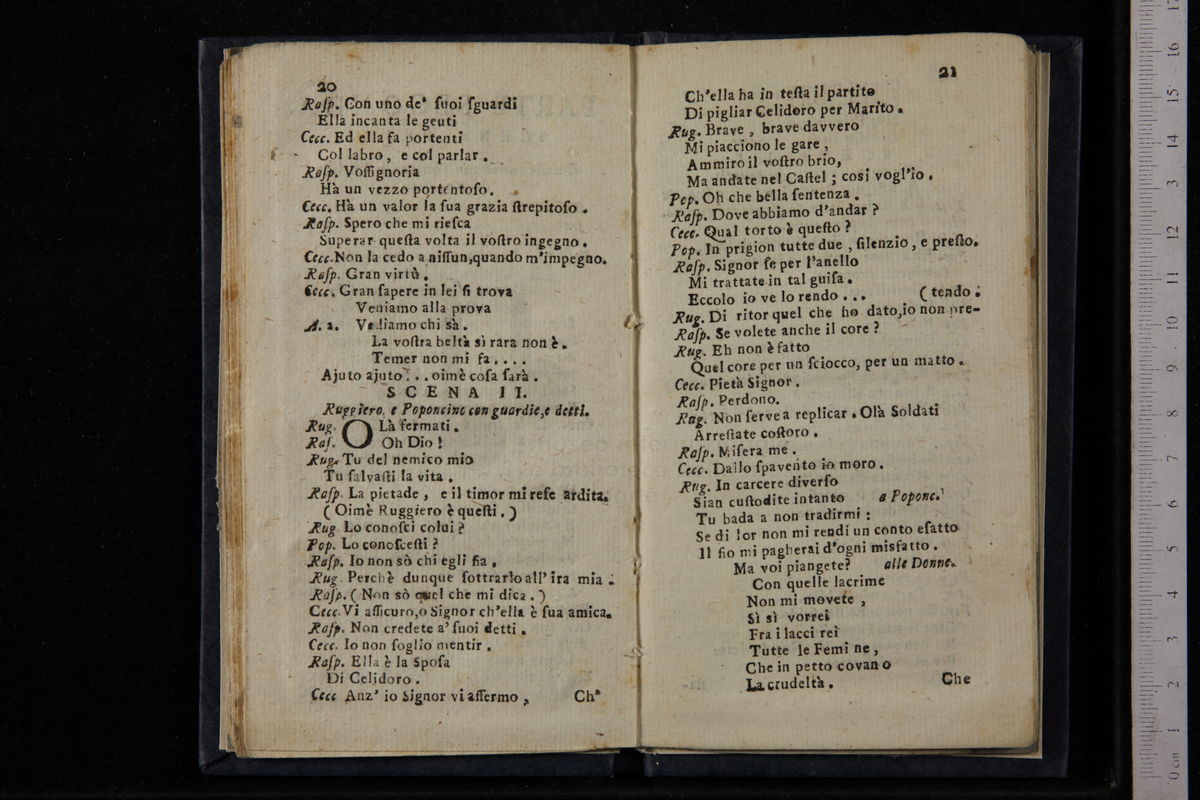 20
Raſp. Con uno de' ſuoi ſguardi
Ella incanta le geuti
Cecc. Ed ella fa portenti
Col labro, e col parlar.
Raſp. Voſſignoria
Hà un vezzo portentoſo.
Cecc. Hà un valor la ſua grazia ſtrepitoſo.
Raſp. Spero che mi rieſca
Superar queſta volta il voſtro ingegno.
Cecc. Non la cedo a niſſun, quando m'impegno.
Raſp. Gran virtù.
Cecc. Gran ſapere in lei ſi trova
Veniamo alla prova
A. 2. Vediamo chi sà.
La voſtra beltà sì rara non è.
Temer non mi fa....
Ajuto ajuto... oimè coſa ſarà.
SCENA II.
Ruggiero, e Poponcino con guardie, e detti.
Rug. OLà fermati.
Raſ. Oh Dio!
Rug. Tu del nemico mio
Tu ſalvaſti la vita.
Raſp. La pietade, e il timor mi reſe ardita.
(Oimè Ruggiero è queſti.)
Rug. Lo conoſci colui?
Pop. Lo conoſceſti?
Raſp. Io non sò chi egli ſia.
Rug. Perchè dunque ſottrarlo all' ira mia.
Raſp. (Non sò quel che mi dica.)
Cecc. Vi aſſicuro, o Signor ch'ella è ſua amica.
Raſp. Non credete a' ſuoi detti.
Cecc. Io non ſoglio mentir.
Raſp. Ella è la Spoſa
Di Celidoro.
Cecc Anz' io Signor vi affermo,
Ch'
21
Ch'ella ha in teſta il partito
Di pigliar Celidoro per Marito.
Rug. Brave, brave davvero
Mi piacciono le gare,
Ammiro il voſtro brio,
Ma andate nel Caſtel; cosi vogl'io.
Pop. Oh che bella ſentenza.
Raſp. Dove abbiamo d'andar?
Cecc. Qual torto è queſto?
Pop. In prigion tutte due, ſilenzio, e preſto.
Raſp. Signor ſe per l'anello
Mi trattate in tal guiſa.
Eccolo io ve lo rendo... (tendo.
Rug. Di ritor quel che ho dato, io non pre-
Raſp. Se volete anche il core?
Rug. Eh non è fatto
Quel core per un ſciocco, per un matto.
Cecc. Pietà Signor.
Raſp. Perdono.
Rug. Non ſerve a replicar. Olà Soldati
Arreſtate coſtoro.
Raſp. Miſera me.
Cecc. Dallo ſpavento io moro.
Rug. In carcere diverſo
Sian cuſtodite intanto a Poponc.
Tu bada a non tradirmi:
Se di lor non mi rendi un conto eſatto
Il fio mi pagherai d'ogni misfatto.
Ma voi piangete? alle Donne.
Con quelle lacrime
Non mi movete,
Sì sì vorrei
Fra i lacci rei
Tutte le Femine,
Che in petto covano
La crudeltà.
Che